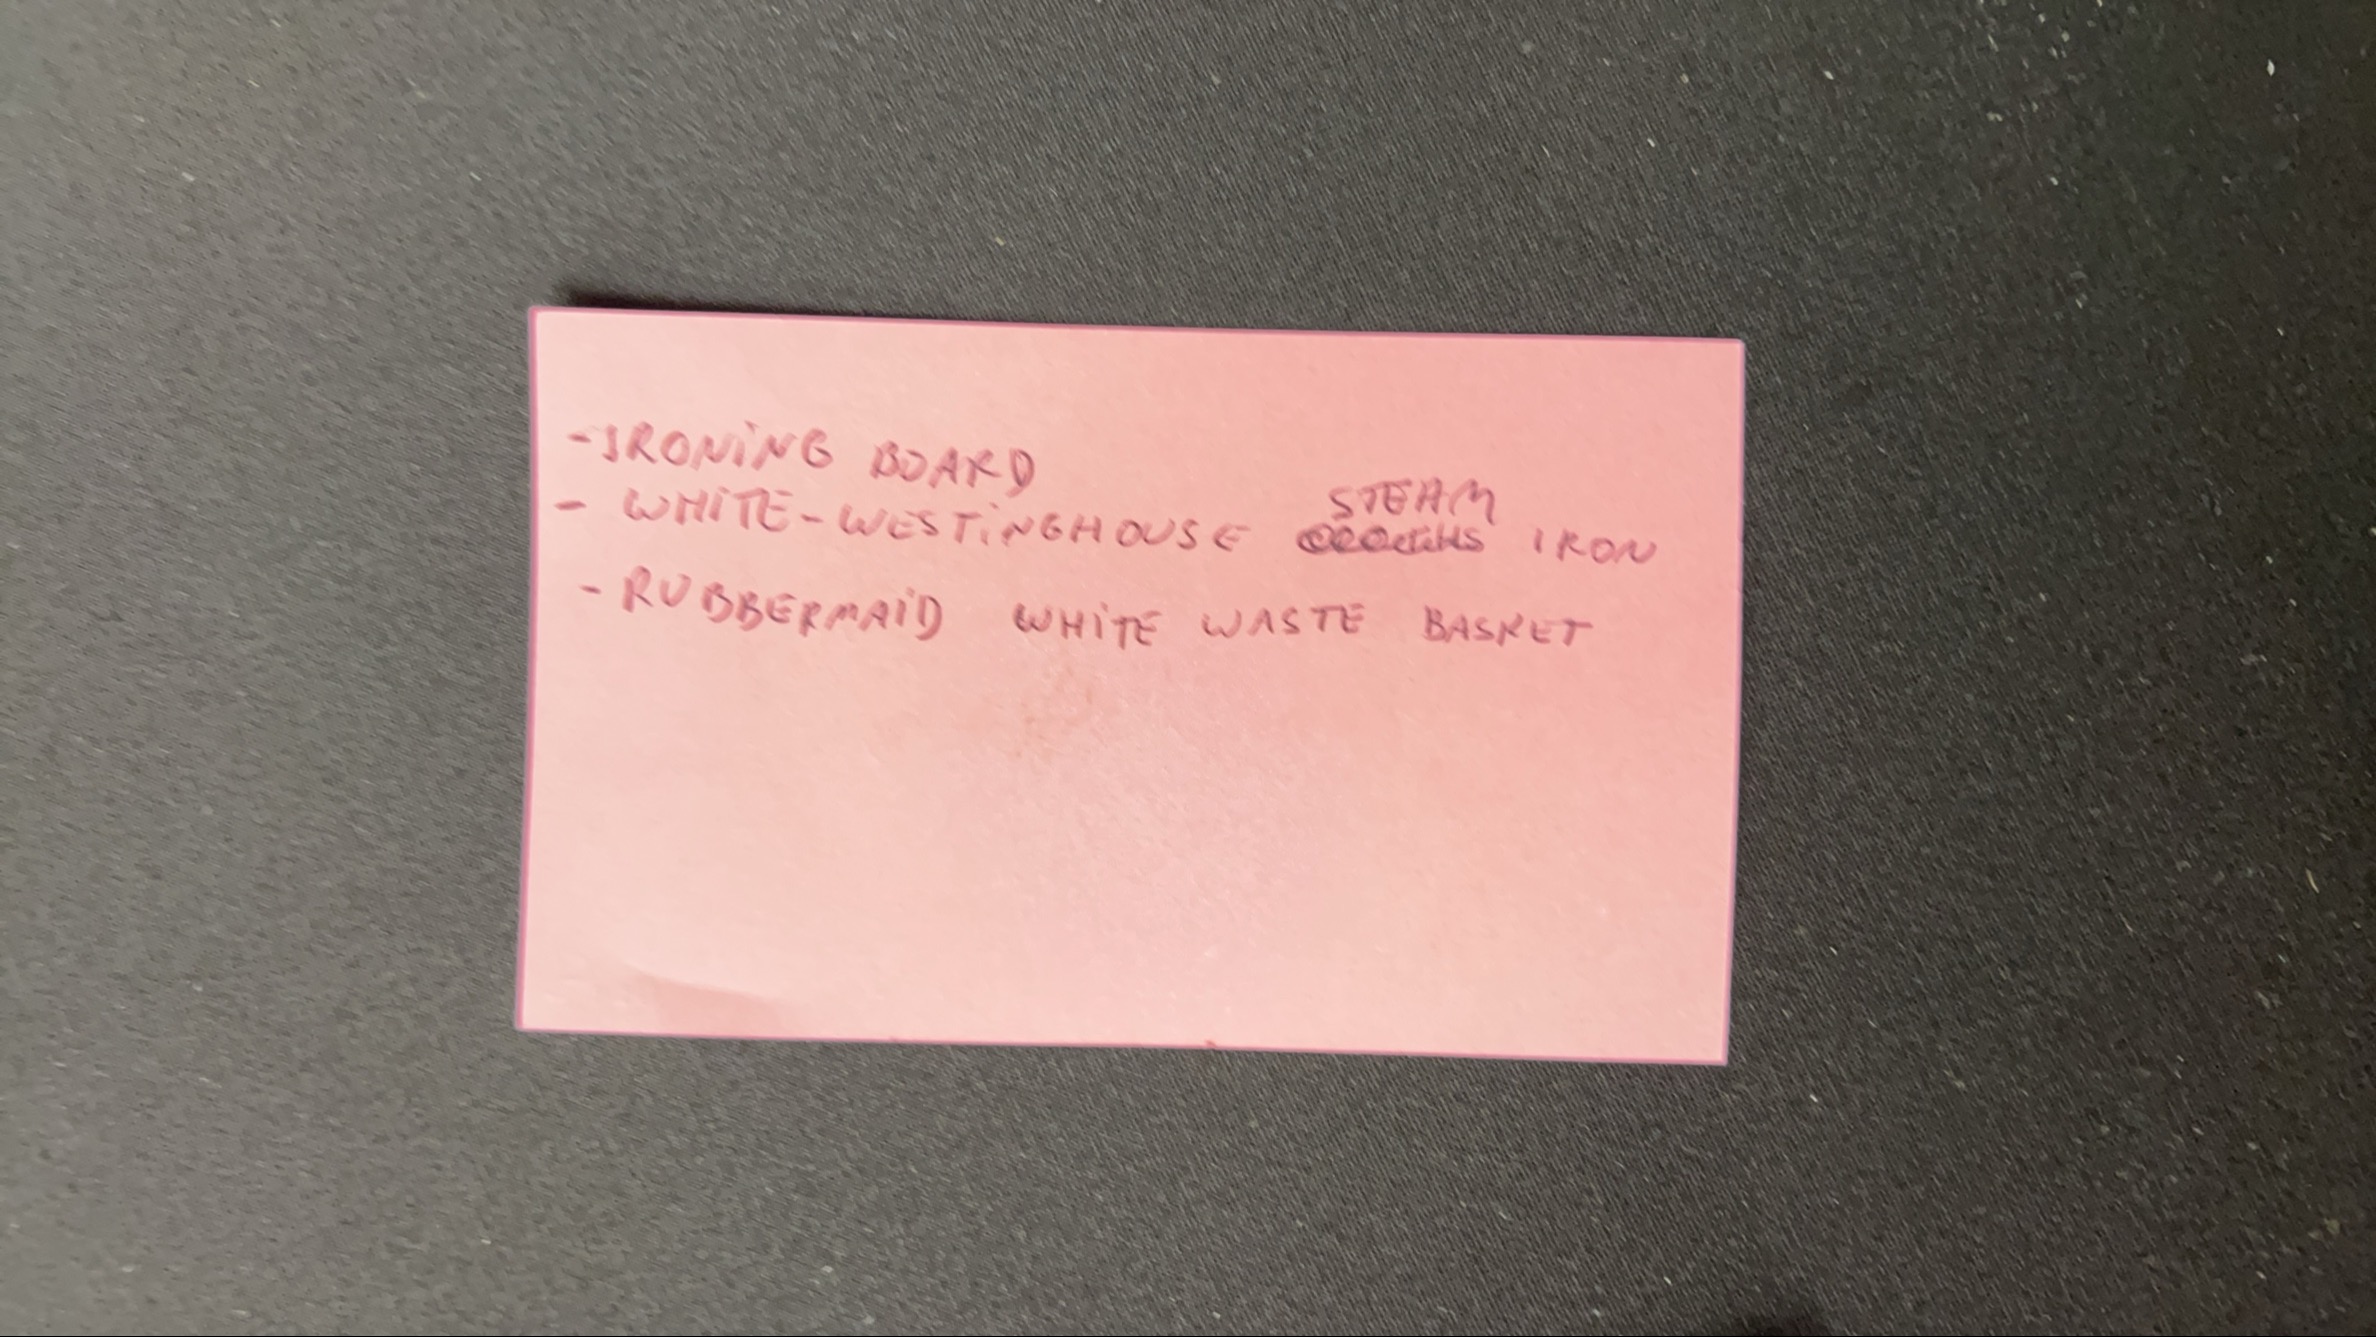 -IRONING BOARD
- WHITE-WESTINGHOUSE STEAM IRON
- RUBBERMAID WHITE WASTE BASKET